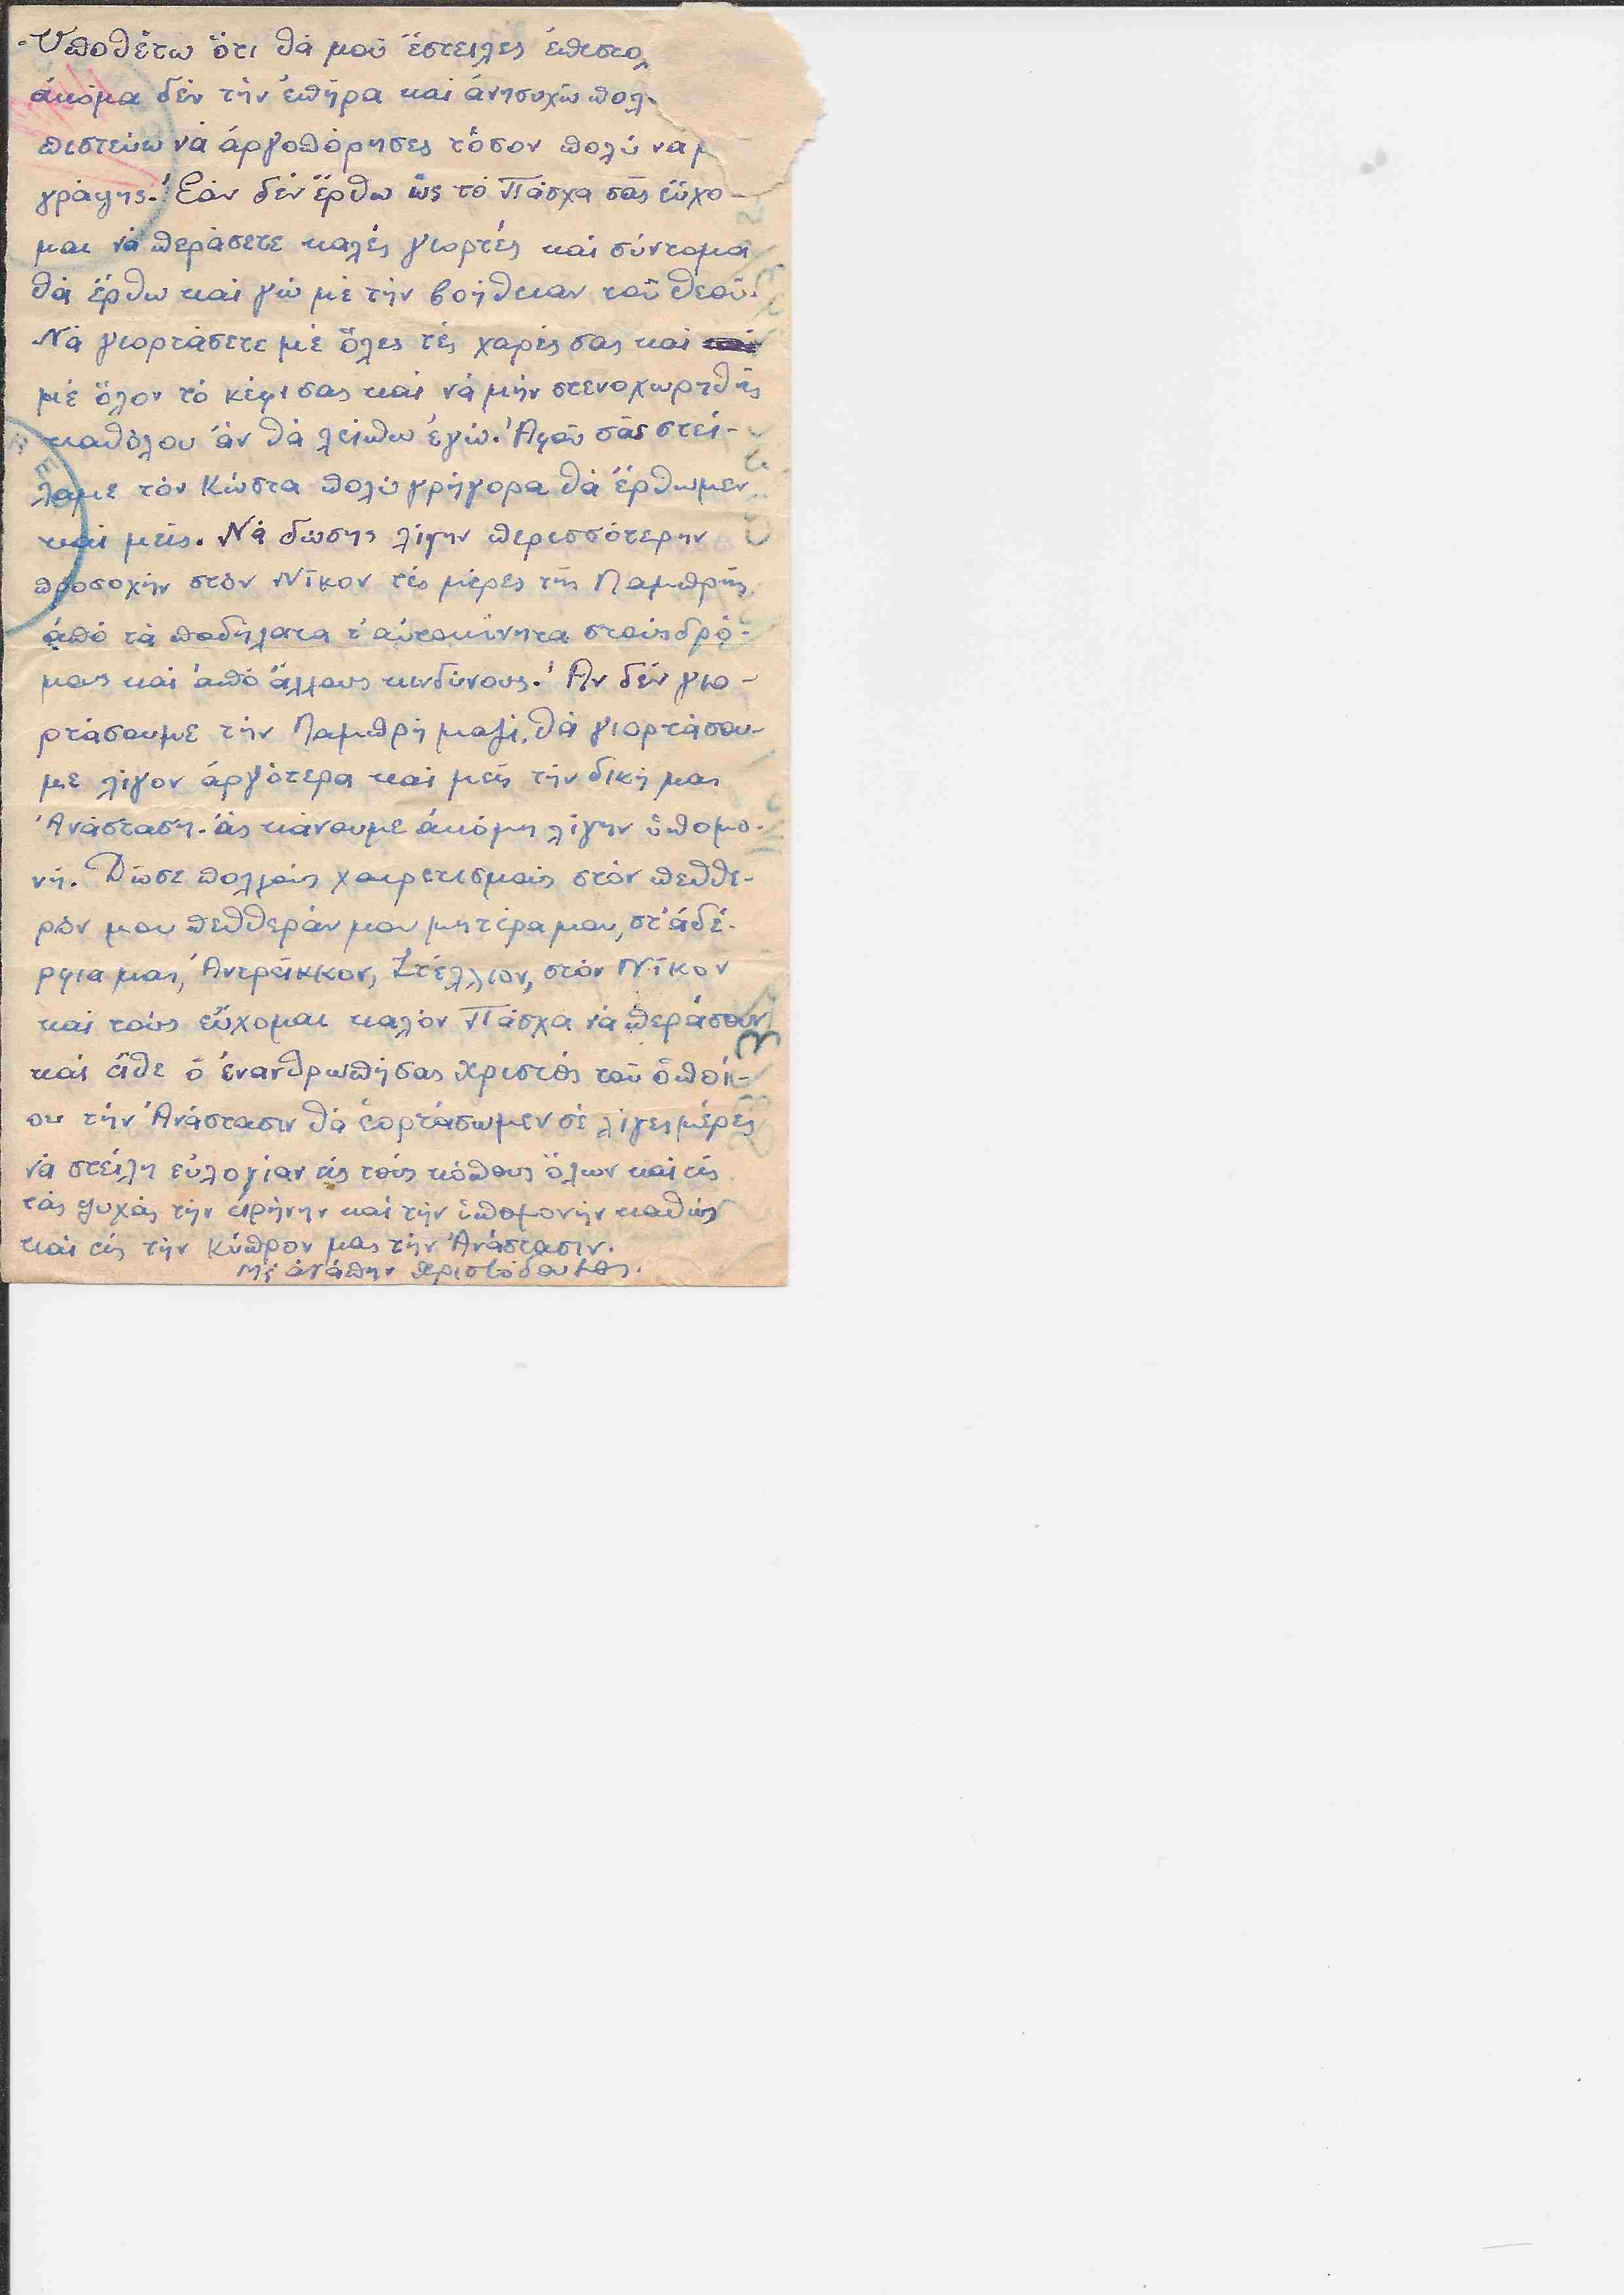 Ὑποθέτω ὅτι θά μοῦ ἔστειλες ἐπιστολ
ἀκόμα δέν τήν ἐπῆρα καί ἀνησυχῶ πολ
πιστεύω νά ἀργοπόρησες τόσον πολύ νά μ
γράψης. Ἐάν δέν ἔρθω ὥς τό Πάσχα σᾶς εὔχο-
μαι νά περάσετε καλές γιορτές καί σύντομα
θά ἔρθω καί γώ μέ τήν βοήθειαν τοῦ θεοῦ.
Νά γιορτάσετε μέ ὅλες τές χαρές σας καί
μέ ὅλον τό κέφι σας καί νά μήν στενοχωρηθῆς
καθόλου ἄν θά λείπω ἐγώ. Ἀφοῦ σᾶς στεί-
λαμε τόν Κώστα πολύ γρήγορα θά ἔρθωμεν
καί μεῖς. Νά δώσης λίγην περισσότερην
προσοχήν στόν Νῖκον τές μέρες τῆς Λαμπρῆς
ἀπό τά ποδήλατα τ' αὐτοκίνητα στούς δρό-
μους καί ἀπό ἄλλους κινδύνους. Ἄν δέν γιο-
ρτάσουμε τήν Λαμπρή μαζί, θά γιορτάσου-
με λίγον ἀργότερα καί μεῖς τήν δική μας
Ἀνάσταση. ἄς κάνουμε ἀκόμη λίγην ὑπομο-
νή. Δῶσε πολλούς χαιρετισμούς στόν πεθθε-
ρόν μου πεθθεράν μου μητέρα μου, στ' ἀδέ-
ρφια μας, Ἀντρέικκον, Στέλλιον, στόν Νῖκον
καί τούς εὔχομαι καλόν Πάσχα νά περάσουν
καί εἴθε ὁ ἐνανθρωπήσας Χριστός τοῦ ὁποί-
ου τήν Ἀνάστασιν θά ἑορτάσωμεν σέ λίγες μέρες
νά στείλη εὐλογίαν εἰς τούς κόπους ὅλων καί εἰς
τάς ψυχάς τήν εἰρήνην καί τήν ὑπομονήν καθώς
καί εἰς τήν Κύπρον μας τήν Ἀνάστασιν.
Μέ ἀγάπην Χριστόδουλος.